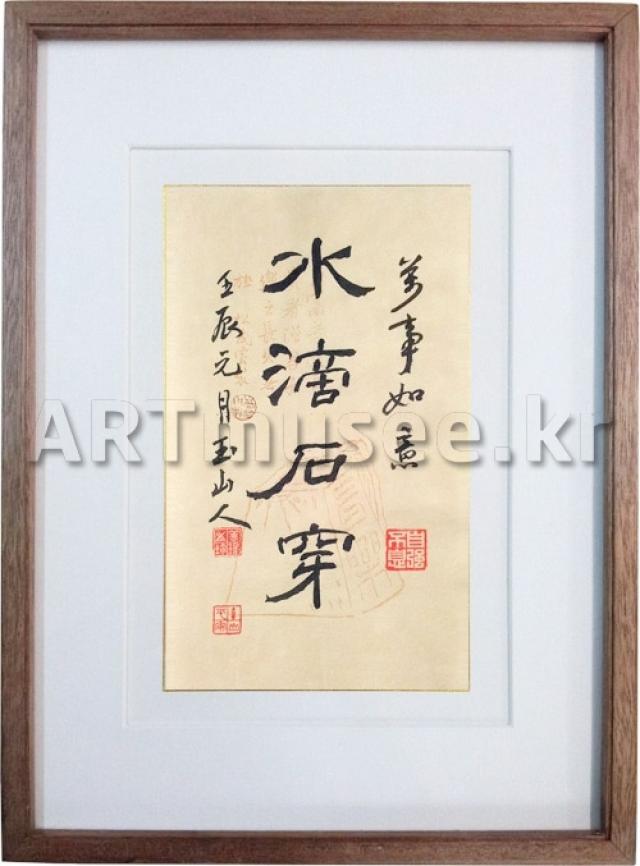 萬事如意
水滴石穿
壬辰元月玉山人
自強不息
ARTmusee.kr